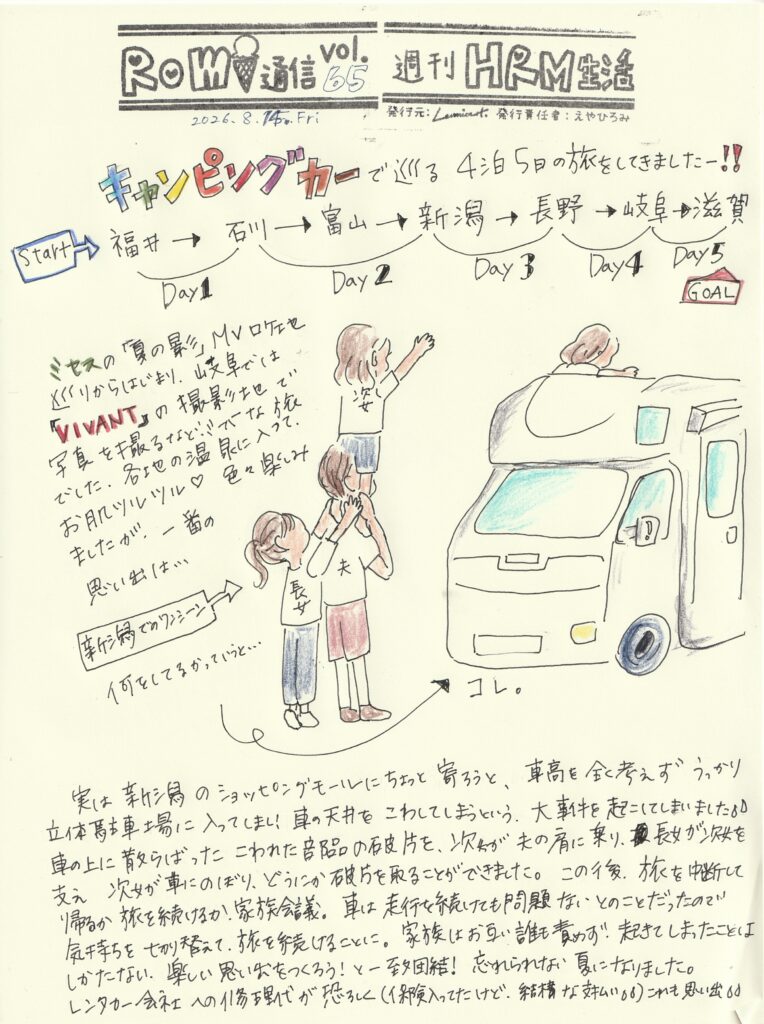 Romi通信 vol.65 週刊 HRM生活
2026.8.14. Fri 発行元: 発行責任者:えやひろみ
キャンピングカーで巡る 4泊5日の旅をしてきましたー!!
Start 福井→石川→富山→新潟→長野→岐阜→滋賀
Day1 Day2 Day3 Day4 Day5
GOAL
ミセスの「夏の影」MVロケ地
巡りからはじまり、岐阜では
「VIVANT」の撮影地で
写真を撮るなど、な旅
でした。各地の温泉に入って、
お肌ツルツル♡ 色々楽しみ
ましたが、一番の
思い出は…
新潟でのワンシーン
何をしてるかっていうと…
次女
夫
長女
コレ。
実は新潟のショッピングモールにちょっと寄ろうと、車高を全く考えずうっかり
立体駐車場に入ってしまい車の天井をこわしてしまうという、大事件を起こしてしまいました
車の上に散らばったこわれた部品の破片を、次女が夫の肩に乗り、長女が次女を
支え 次女が車にのぼり、どうにか破片を取ることができました。この後、旅を中断して
帰るか旅を続けるか、家族会議。車は走行を続けても問題ないとのことだったので
気持ちを切り替えて、旅を続けることに。家族はお互い誰も責めず、起きてしまったことは
しかたない、楽しい思い出をつくろう!と一致団結!忘れられない夏になりました。
レンタカー会社への修理代が恐ろしく(保険入ってたけど、結構な支払い)これも思い出